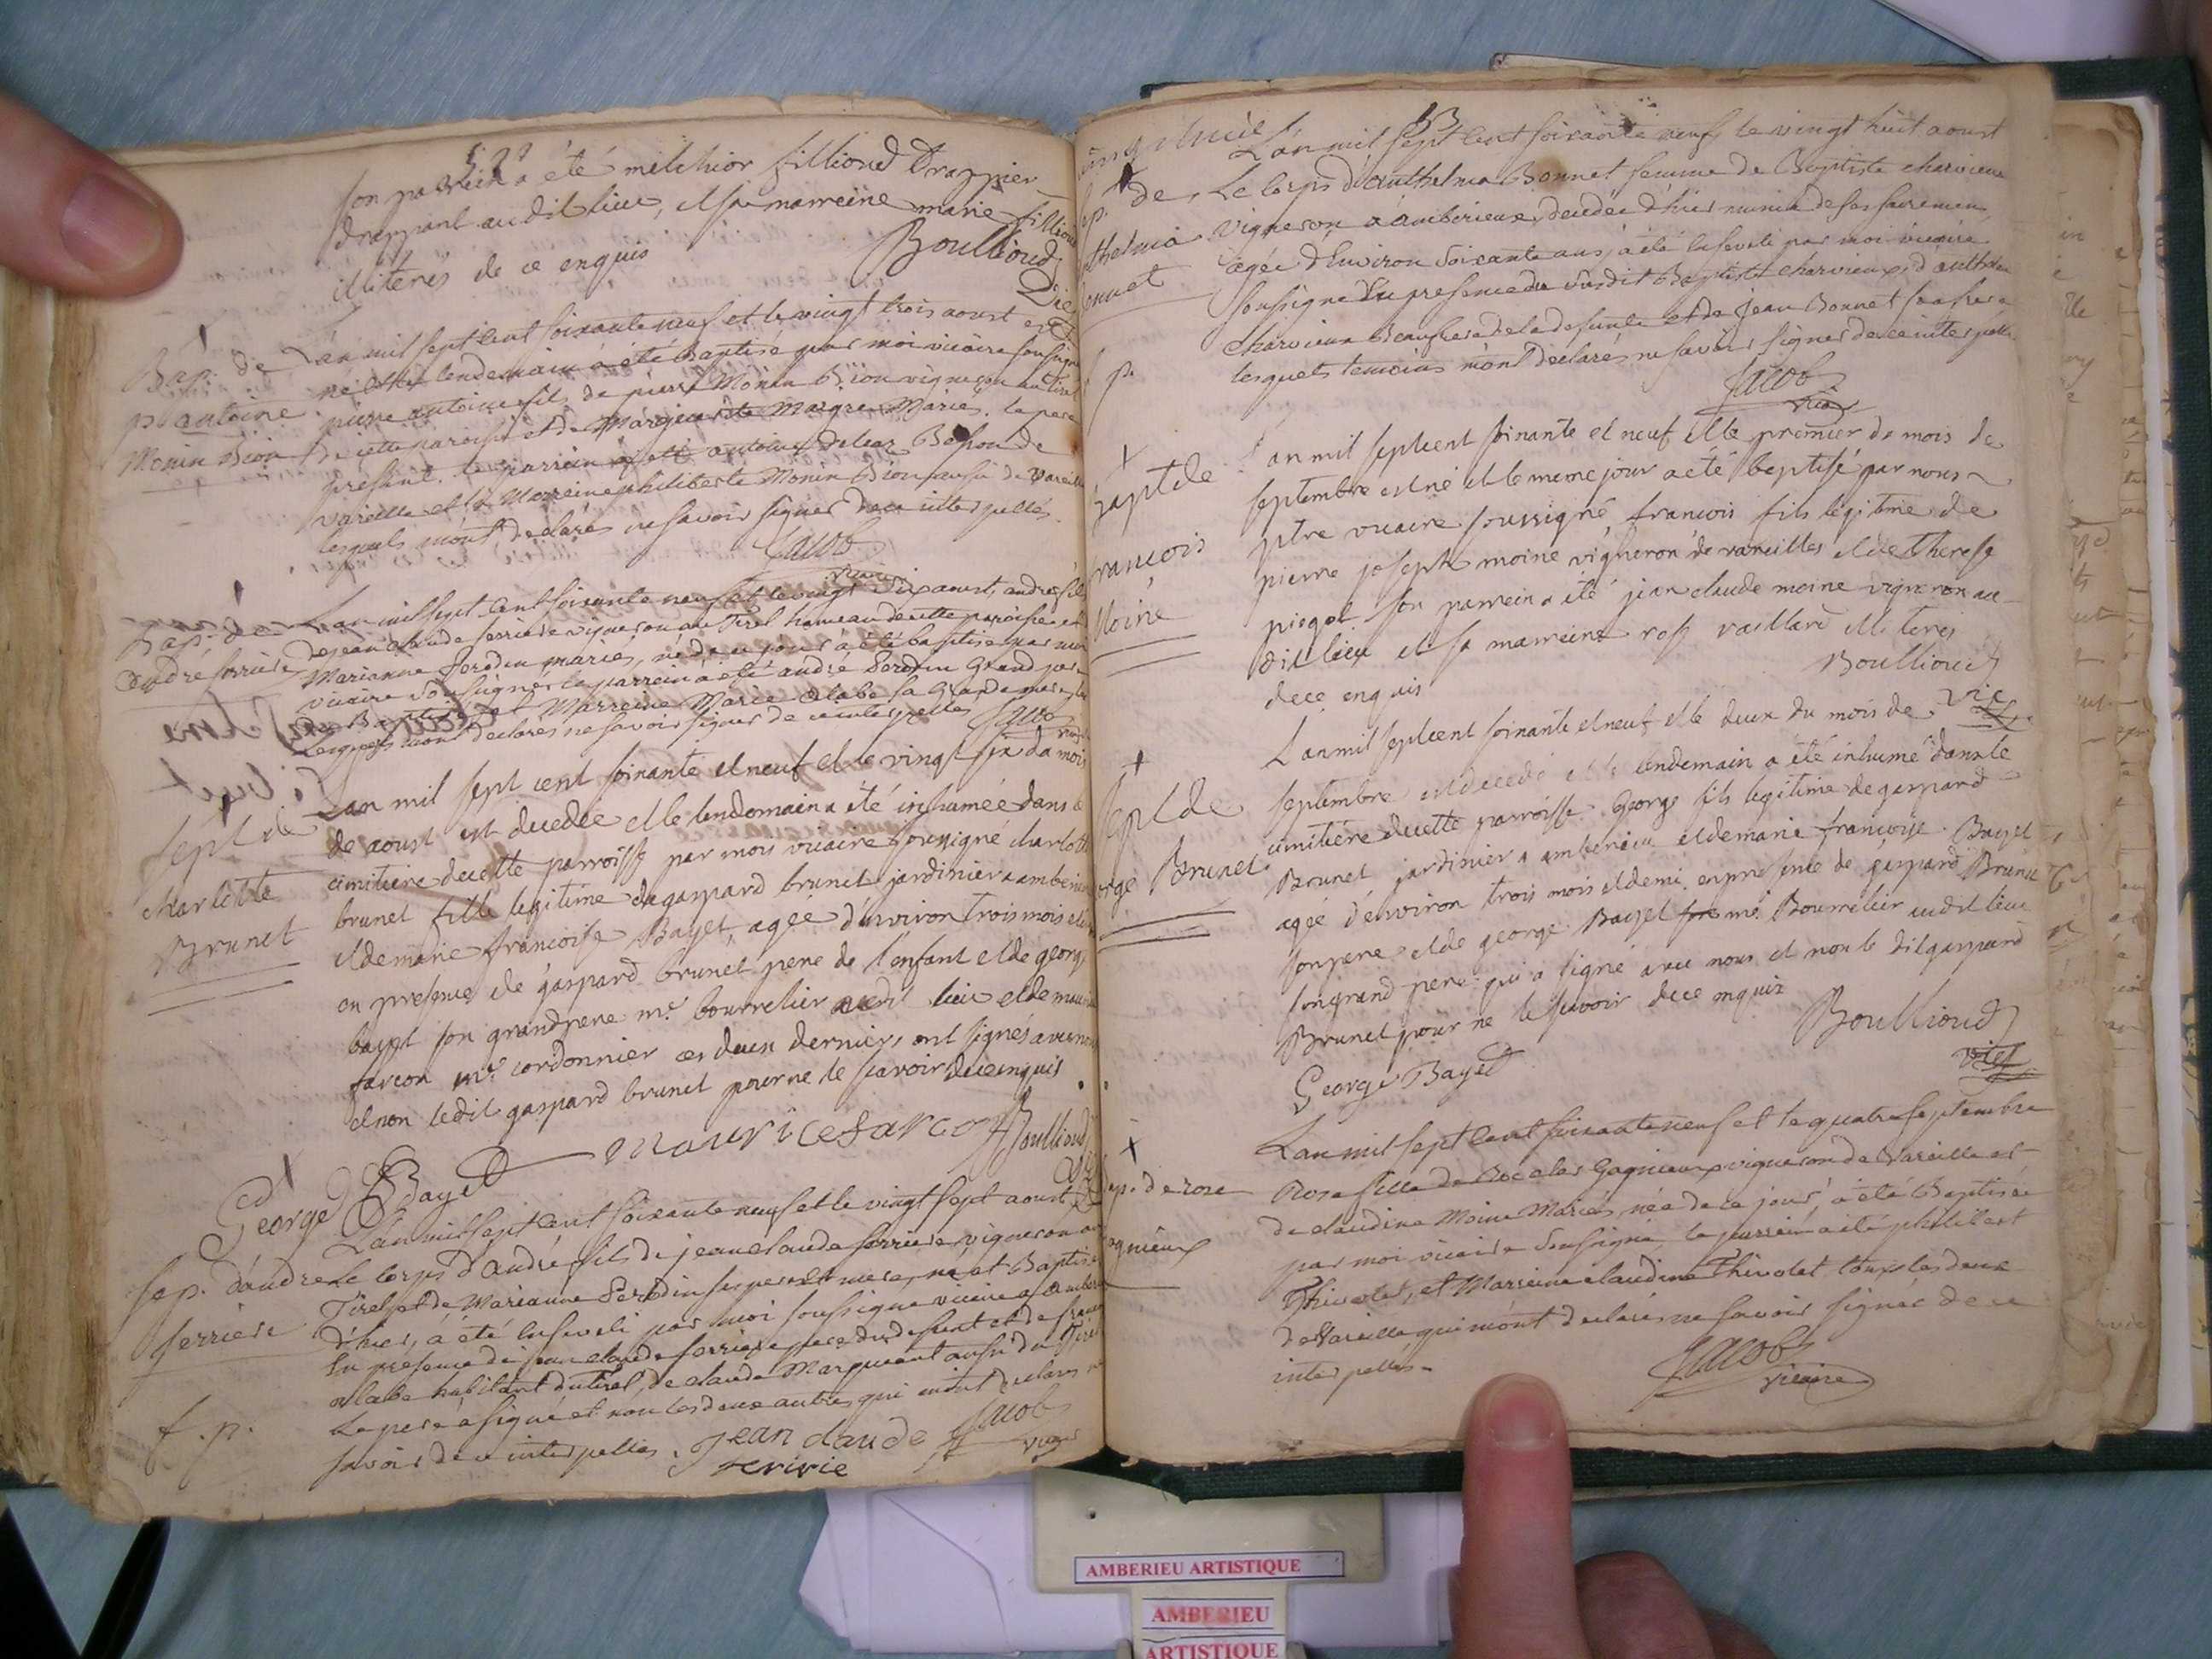 son parrein a été melchior fillioud Drappier
drappant audit lieu, et sa marreine marie fillioud
illiterés de ce enquis
Boullioud
Vic
Bap. de
pre antoine
Monin Bion
L'an mil sept cent soixante neuf et le vingt trois aoust est
né et le lendemain a été Baptisé par moi vicaire soussigné
pierre antoine fils de pierre Monin Bion vigneron au tiret
de cette paroisse et de Marguerite Maigre Mariés. le pere
présent. le parrein a été antoine
vareille et la Marreine philiberte Monin Bion aussi de Vareille
lesquels m'ont declarés ne savoir signer de ce interpellés.
Jacob
vicaire
Bap. de
andré ferriere
L'an mil sept cent soixante neuf et le vingt six aoust, andré fils
de jean claude ferriere vigneron au Tiret hameau de cette paroisse et de
Marianne Perodin mariés, né de ce jour a été baptisé par moi
vicaire soussigné le parrein a été andré Perodin Grand pere
du Baptisé et Marreine Marie alabe sa Grande mere
lesquels m'ont declarés ne savoir signer de ce interpellés
Jacob
vic
Sept de
charlotte
Brunet
L'an mil sept cent soixante et neuf et le vingt six du mois
de aoust est decedée et le lendemain a été inhumée dans le
cimitiere de cette parroisse par mois vicaire soussigné charlotte
brunet fille legitime de gaspard brunet jardinier a amberieu
et de marie francoise Bayet, agée d'environ trois mois et demi
en presence de gaspard brunet pere de l'enfant et de george
bayet son grandpere me. bourrelier audit lieu et de maurice
farcon me. cordonnier ces deux derniers ont signés avec nous
et non ledit gaspard brunet pour ne le scavoir de ce enquis
George Bayet
maurice farcon
Boullioud
Vic
Sep. d'andre
ferriere
f. p.
L'an mil sept cent soixante neuf et le vingt sept aoust
le corps d'andré fils de jean claude ferriere vigneron au
Tiret et de Marianne Perodin ses pere et mere, né et Baptisé
d'hier, a été enseveli par moi soussigné vicaire a amberieu
En presence de jean claude ferriere pere du defunt et de
alabe habitant du tiret, de claude Marquerant aussi du Tiret
Le pere a signé et non les deux autres qui m'ont declarés ne
savoir de ce interpellés.
jean claude
feririe
Jacob
vicaire
Sep. de
anthelma
Bonnet
f p.
L'an mil sept cent soixante neuf, le vingt huit aoust
Le corps d'anthelma Bonnet femme de Baptiste charvieux
vigneron a amberieux, decedée d'hier munie de ses sacremens
agée d'Environ soixante ans, a été enseveli par moi vicaire
soussigné En presence du susdit Baptiste charvieux, d'anthelme
charvieux Beaufrere de la defunte et de jean Bonnet son frere
lesquels temoins m'ont declarés ne savoir signer de ce interpellés
Jacob
vic
Bapt de
francois
Moine
L'an mil sept cent soixante et neuf et le premier de mois de
septembre est né et le meme jour a été baptisé par nous
ptre vicaire soussigné, francois fils legitime de
pierre joseph moine vigneron de vareilles et de therese
pieget son parrein a été jean claude moine vigneron au
dit lieu et sa marreine rose vaillard illiteres
de ce enquis
Boullioud
Vic
Sept de
george Brunet
L'an mil sept cent soixante et neuf et le deux du mois de
septembre est decedé et le lendemain a été inhumé dans le
cimitiére de cette parroisse George fils legitime de gaspard
Brunet jardinier a amberieu et de marie francoise Bayet
agée d'environ trois mois et demi en presence de gaspard Brunet
son pere et de george Bayet me. Bourrelier audit lieu
son grand pere qui a signé avec nous et non le dit gaspard
Brunet pour ne le scavoir de ce enquis
George Bayet
Boullioud
vic
Bap. de rose
gagnieux
L'an mil sept cent soixante neuf et le quatre septembre
Rose fille de Nicolas Gagnieux vigneron de Vareille et
de claudine Moine Mariés, née de ce jour a été Baptisée
par moi vicaire soussigné, le parrein a été philibert
Thivolet, et Marreine claudine Thivolet tous les deux
de Vareille qui m'ont declarés ne savoir signer de ce
interpellés.
Jacob
vicaire
AMBERIEU ARTISTIQUE
AMBERIEU
ARTISTIQUE